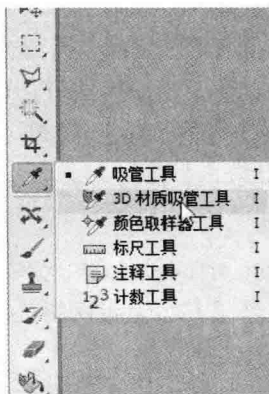 吸管工具 I
3D 材质吸管工具 I
颜色取样器工具 I
标尺工具 I
注释工具 I
123 计数工具 I